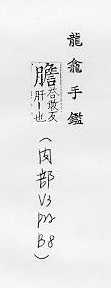 龍龕手鑑
膽 荅敢反肝丨也
(肉部 V3 P22 B8)